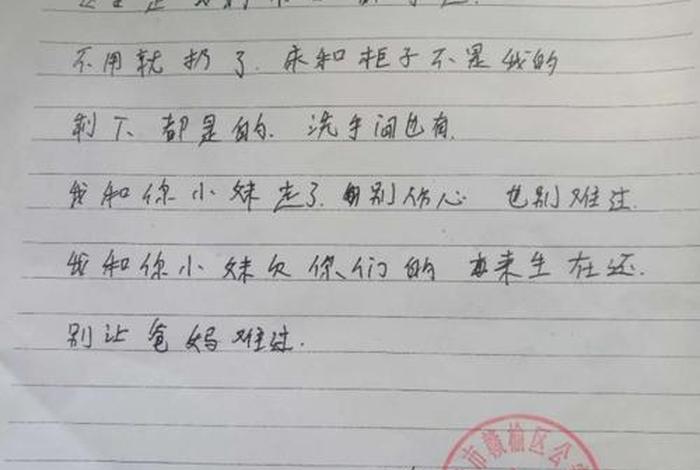 不用就扔了.床和柜子不是我的
剩下都是的.洗手间也有.
我和你小妹走了.别伤心 也别难过.
我和你小妹欠你们的 来生在还.
别让爸妈难过.
市赣榆区公